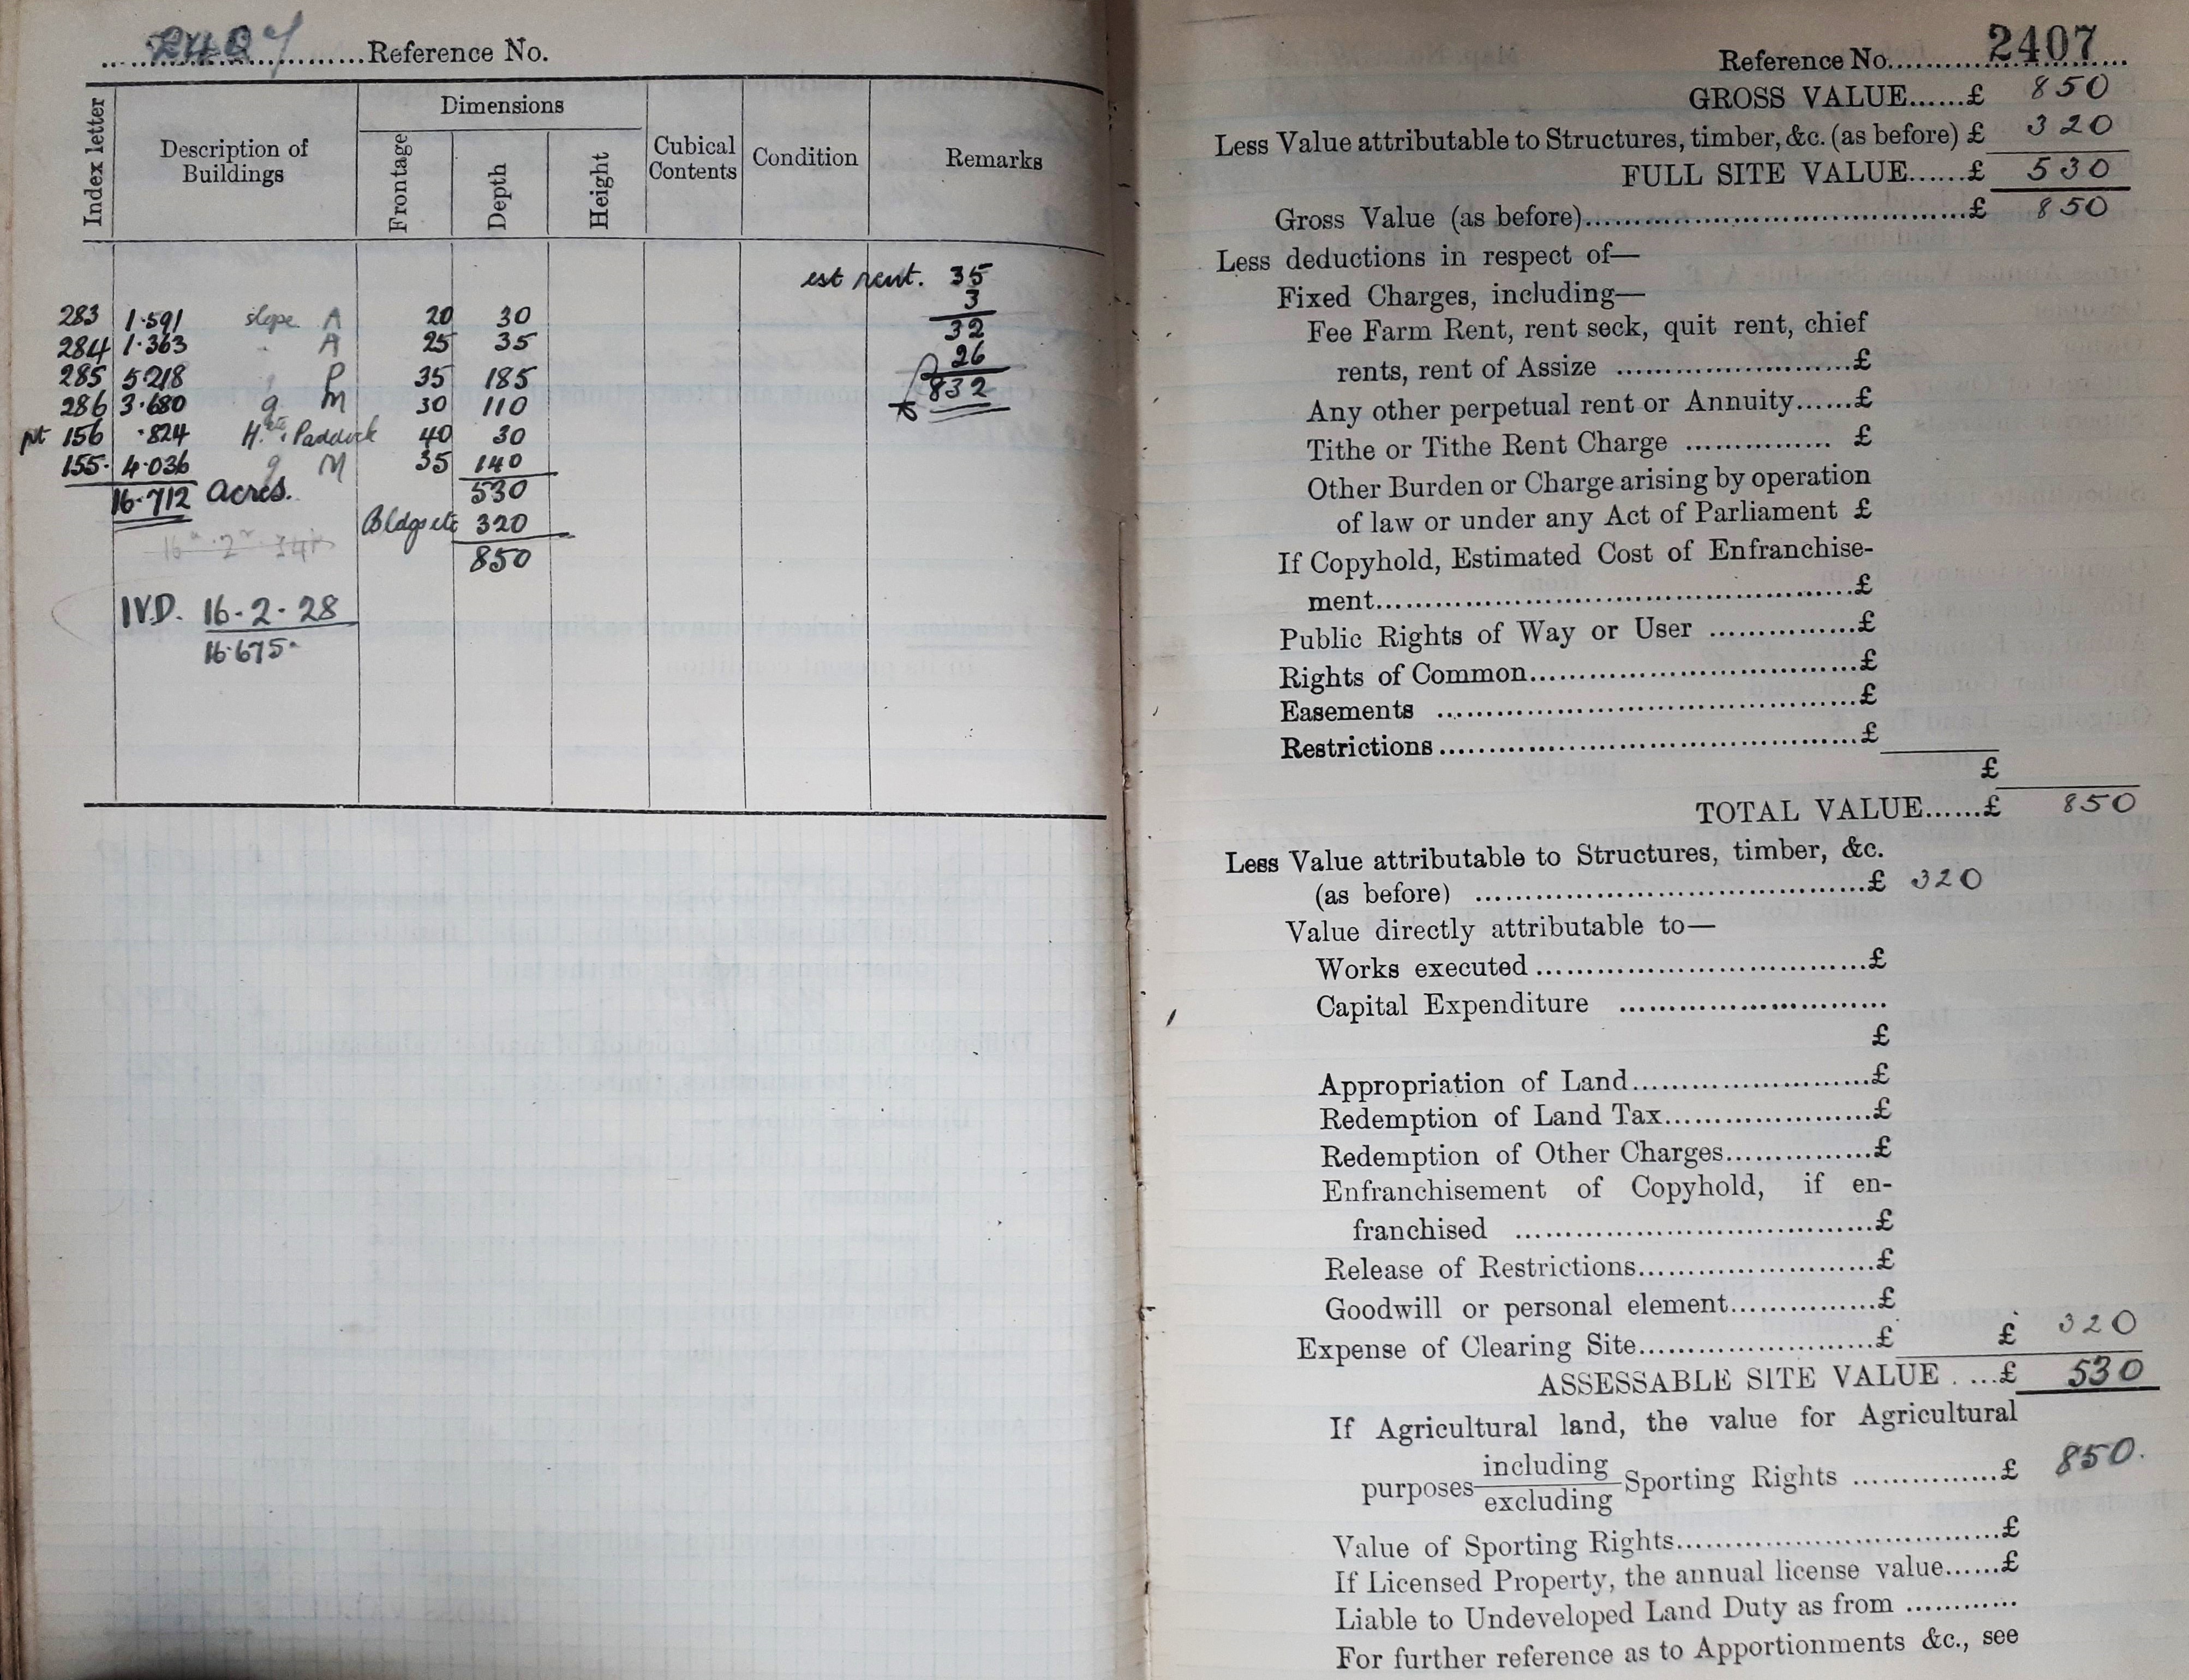 2407 Reference No.
Index letter
Description of Buildings
Dimensions
Frontage
Depth
Height
Cubical Contents
Condition
Remarks
est rent. 35
3
32
26
832
283 1·591 slope A 20 30
284 1·363 " A 25 35
285 5·218 " P 35 185
286 3·680 g M 30 110
pt 156 ·824 Paddock 40 30
155· 4·036 g M 35 140
16·712 acres. 530
Bldgs etc 320
850
16 2 34
I.V.D. 16-2-28
16·675
Reference No. 2407
GROSS VALUE......£ 850
Less Value attributable to Structures, timber, &c. (as before) £ 320
FULL SITE VALUE......£ 530
Gross Value (as before)......£ 850
Less deductions in respect of—
Fixed Charges, including—
Fee Farm Rent, rent seck, quit rent, chief
rents, rent of Assize ......£
Any other perpetual rent or Annuity......£
Tithe or Tithe Rent Charge ...... £
Other Burden or Charge arising by operation
of law or under any Act of Parliament £
If Copyhold, Estimated Cost of Enfranchise-
ment......£
Public Rights of Way or User ......£
Rights of Common......£
Easements ......£
Restrictions......£
£
TOTAL VALUE......£ 850
Less Value attributable to Structures, timber, &c.
(as before) ......£ 320
Value directly attributable to—
Works executed......£
Capital Expenditure ......
£
Appropriation of Land......£
Redemption of Land Tax......£
Redemption of Other Charges......£
Enfranchisement of Copyhold, if en-
franchised ......£
Release of Restrictions......£
Goodwill or personal element......£
Expense of Clearing Site......£ £ 320
ASSESSABLE SITE VALUE ....£ 530
If Agricultural land, the value for Agricultural
purposes including
excluding Sporting Rights ......£ 850.
Value of Sporting Rights......£
If Licensed Property, the annual license value......£
Liable to Undeveloped Land Duty as from ......
For further reference as to Apportionments &c., see